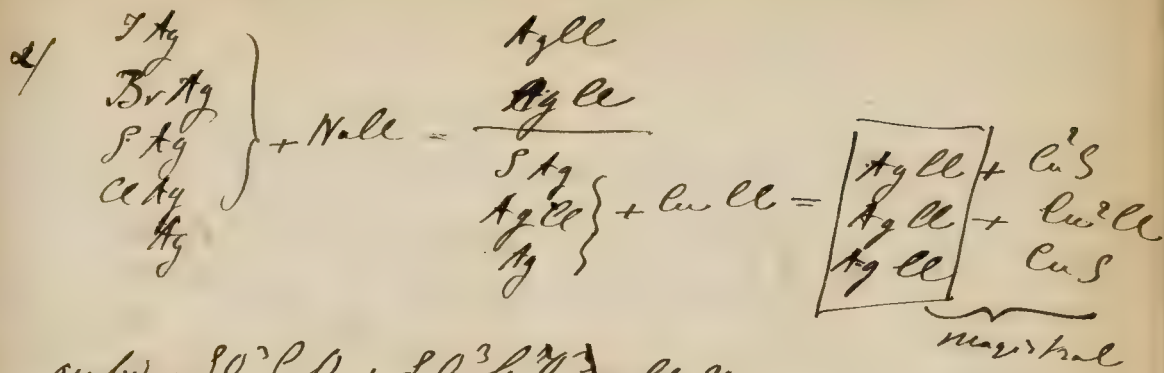 2/ IAg
BrAg
SAg
ClAg
Ag
+ NaCl =
AgCl
AgCl
SAg
AgCl
Ag
+ CuCl =
AgCl + Cu²S
AgCl + Cu²Cl
AgCl CuS
magistral